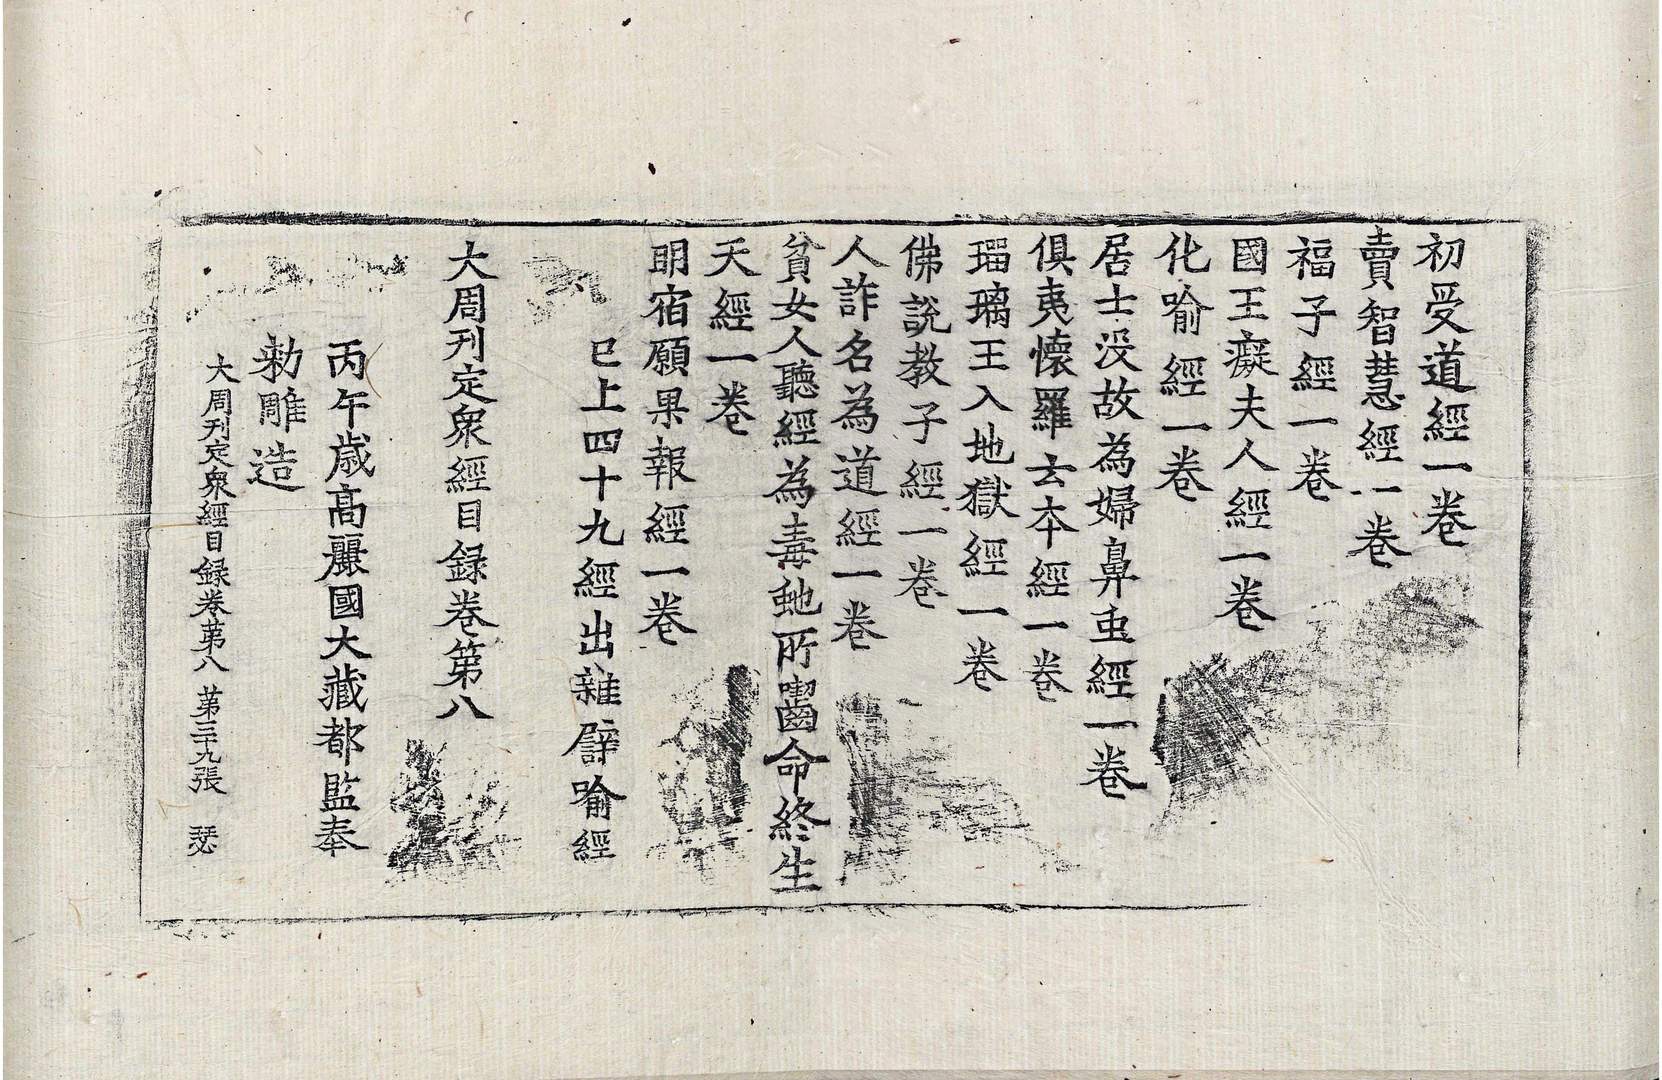 初受道經一卷
賣智慧經一卷
福子經一卷
國王癡夫人經一卷
化喻經一卷
居士没故為婦鼻虫經一卷
俱夷懷羅云夲經一卷
瑠璃王入地獄經一卷
佛說教子經一卷
人詐名為道經一卷
貧女人聽經為毒虵所囓命終生
天經一卷
明宿願果報經一卷
已上四十九經出雜譬喻經
大周刊定衆經目録卷第八
丙午歳髙麗國大藏都監奉
勑雕造
大周刊定衆經目録卷苐八 苐三十九張 瑟